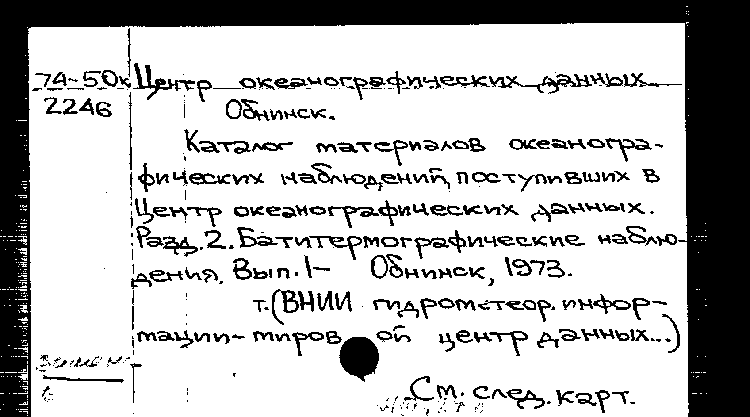 74-50к Центр океанографических данных.
2246 Обнинск.
Каталог материалов океаногра-
фических наблюдений, поступивших в
Центр океанографических данных.
Разд. 2. Батитермографические наблю-
дения. Вып. 1- Обнинск, 1973.
т. (ВНИИ гидрометеор. инфор-
мации-миров ой центр данных...)
См. след. карт.